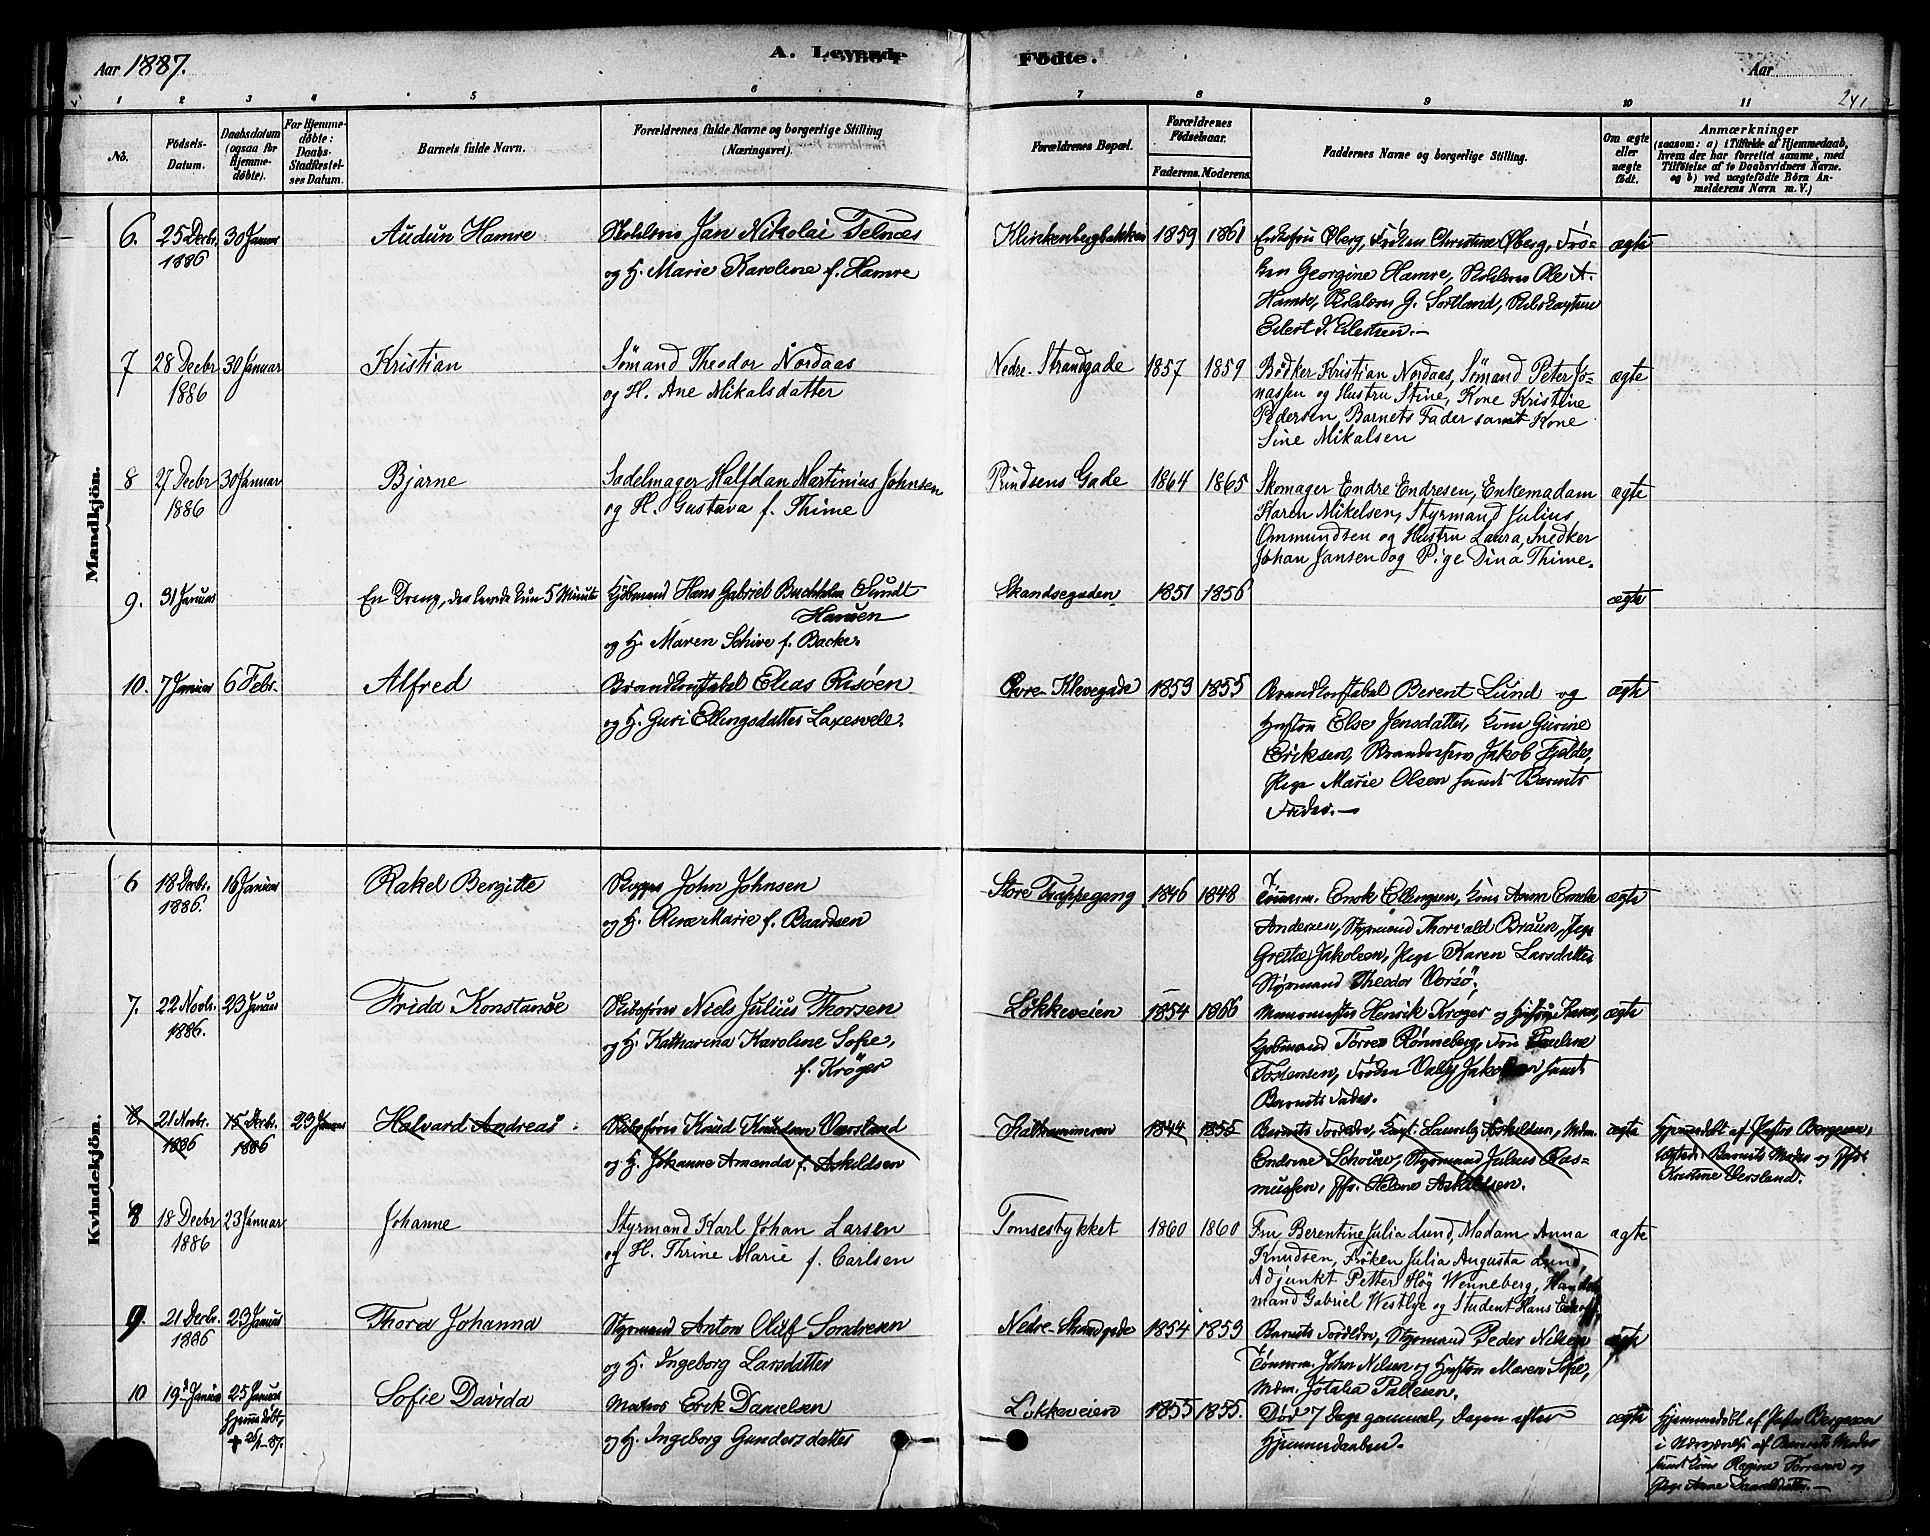 Aar 1887.
A. Levende Födte.
Aar
241
1 2 3 4 5 6 7 8 9 10 11
No.
Födsels-Datum.
Daabsdatum (ogsaa for Hjemme-döbte).
For Hjemme-döbte: Daabs-Stadfæstel-ses Datum.
Barnets fulde Navn.
Forældrenes fulde Navne og borgerlige Stilling (Næringsvei).
Forældrenes Bopæl.
Forældrenes Födselsaar.
Faderens. Moderens.
Faddernes Navne og borgerlige Stilling.
Om ægte eller uægte født.
Anmærkninger
(saasom: a) i Tilfælde af Hjemmedaab, hvem der har forrettet samme, med Tilføielse af to Daabsvidners Navne. og b) ved uægtefødte Börn An-melderens Navn m. V.)
Mandkjön.
6. 25 Decbr. 1886 30 Januar Audun Hamre
Jan Nikolai Telnæs
og H. Marie Karoline f. Hamre
Klinkenbergbakken 1859 1861
Enkefru Øberg, Frøken Christine Øberg, Frø-
ken Georgine Hamre, Ole A.
Hamre, G. Sortland,
Eilert Eilertsen.—
ægte
7 28 Decbr 1886 30 Januar Kristian
Sömand Theodor Nordaas
og H. Ane Mikalsdatter
Nedre Strandgade 1857 1859
Bödker Kristian Nordaas, Sömand Peter Jo-
nassen og Hustru Stine, Kone Kristine
Pedersen, Barnets Fader samt Kone
Sine Mikalsen
ægte
8 27 Decbr 1886 30 Januar Bjarne
Sadelmager Halfdan Martinius Johnsen
og H. Gustava f. Thime
Prindsens Gade 1864 1865
Skomager Endre Endresen, Enkemadam
Karen Mikelsen, Styrmand Julius
Ommundsen og Hustru Laura, Snedker
Johan Jansen og Pige Dina Thime.
ægte
9. 31 Januar En Dreng, der levede kun 5 Minuter
Kjøbmand Hans Gabriel Buchholm Sundt
Hansen
og H. Maren Schive f. Backer
Skandsegaden 1851 1856
ægte
10. 7 Januar 6 Febr. Alfred
Brandkonstabel Elias Risöen
og H. Guri Ellingsdatter Laxesvele.
Øvre Klevegade 1859 1855
Brandkonstabel Berent Lund og
Hustru Else Jensdatter, Kone Gurine
Eriksen, Jakob Fjelde,
Pige Marie Olsen samt Barnets
Fader.—
ægte
Kvindekjön.
6 18 Decbr. 1886. 16 Januar Rakel Bergitte
John Johnsen
og H. Oline Marie f. Baardsen
Store Trappegang 1846 1848
Ellingsen, Kone Anne
Andersen, Styrmand Thorvald Braun, Pige
Jakobsen, Pige Karen Larsdatter
Styrmand Theodor Vorsö.
ægte
7. 22 Novbr. 1886. 23 Januar Frida Konstanse
Skibsfører Niels Julius Thorsen
og H. Katharina Karoline Sofie,
f. Kröger
Løkkeveien 1854 1866
Henrik Kröger og Hustru
Kjøbmand Torres Rønneberg, Fru Pauline
Torstensen, Frøken Valy Jakobsen samt
Barnets Fader.
ægte
8. 21 Novbr. 1886 15 Decbr. 1886 23 Januar Halvard Andreas
Skibsfører Knud Knudsen Værsland
og H. Johanne Amanda f. Askildsen
1844 1855
Barnets Forældre, Kapt. Lauritz Askildsen, Mdm.
Endrine Schouse, Styrmand Julius Ras-
mussen, Helene Askildsen.
ægte
Hjemmedøbt af Pastor Bergesen,
Barnets Moder og
Kristine Versland.
8 18 Decbr 1886 23 Januar Johanne
Styrmand Karl Johan Larsen
og H. Thrine Marie f. Carlsen
Tomsestykket 1860 1860
Fru Berentine Julia Lund, Madam Anna
Knudsen, Frøken Julia Augusta Lund,
Adjunkt Petter Høg Wenneberg, Handels
mand Gabriel Westlye og Student Hans
ægte
9. 21 Decbr. 1886 23 Januar Thora Johanna
Styrmand Anton Oluf Sondresen
og H. Ingeborg Larsdatter
Nedre Strandgade 1854 1859
Barnets Forældre, Styrmand Peder Nilsen
Tømmerm. John Nilsen og Hustru Maren Sofie,
Mdm. Jotalia Pallesen.
ægte
10 19 Januar 25 Januar Hjemmedøbt, + 26/1-87. Sofie Davida
Matros Erik Danielsen
og H. Ingeborg Gundersdatter
Løkkeveien 1855 1855.
Død 7 Dage gammel, Dagen efter
Hjemmedaaben.
ægte
Hjemmedøbt af Pastor Bergesen
i Nærværelse af Barnets Moder
samt Kone Regine Torresen og
Pige Anne Danielsdatter.—